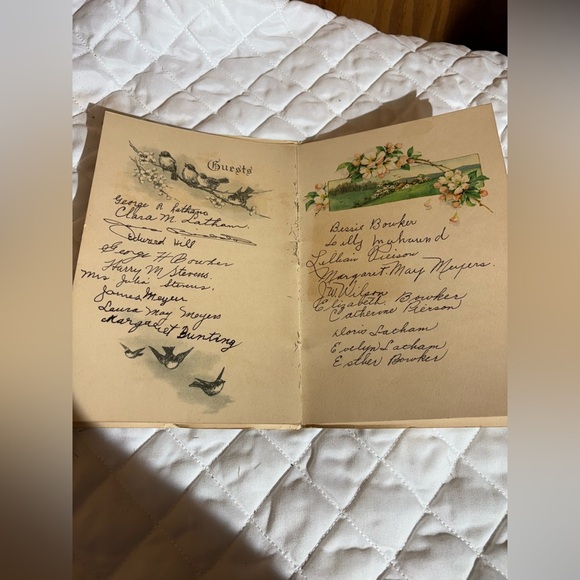 Guests
George A Latham
Clara M. Latham
Edward Hill
George H Bowker
Harry M Stevens
Mrs Julia Stevens.
James Meyer
Laura May Meyers
Margaret Bunting
Bessie Bowker
Lilly
Lillian Pierson
Margaret May Meyers.
J.W. Wilson
Elizabeth Bowker
Catherine Pierson
Doris Latham
Evelyn Latham
Esther Bowker